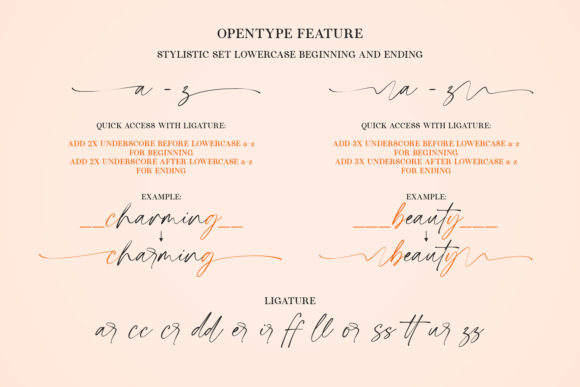 OPENTYPE FEATURE
STYLISTIC SET LOWERCASE BEGINNING AND ENDING
a - z
QUICK ACCESS WITH LIGATURE:
ADD 2X UNDERSCORE BEFORE LOWERCASE a-z
FOR BEGINNING
ADD 2X UNDERSCORE AFTER LOWERCASE a-z
FOR ENDING
EXAMPLE:
__charming__
charming
a - z
QUICK ACCESS WITH LIGATURE:
ADD 3X UNDERSCORE BEFORE LOWERCASE a-z
FOR BEGINNING
ADD 3X UNDERSCORE AFTER LOWERCASE a-z
FOR ENDING
EXAMPLE:
___beauty___
beauty
LIGATURE
ar cc cr dd er ir ff ll or ss tt ur zz